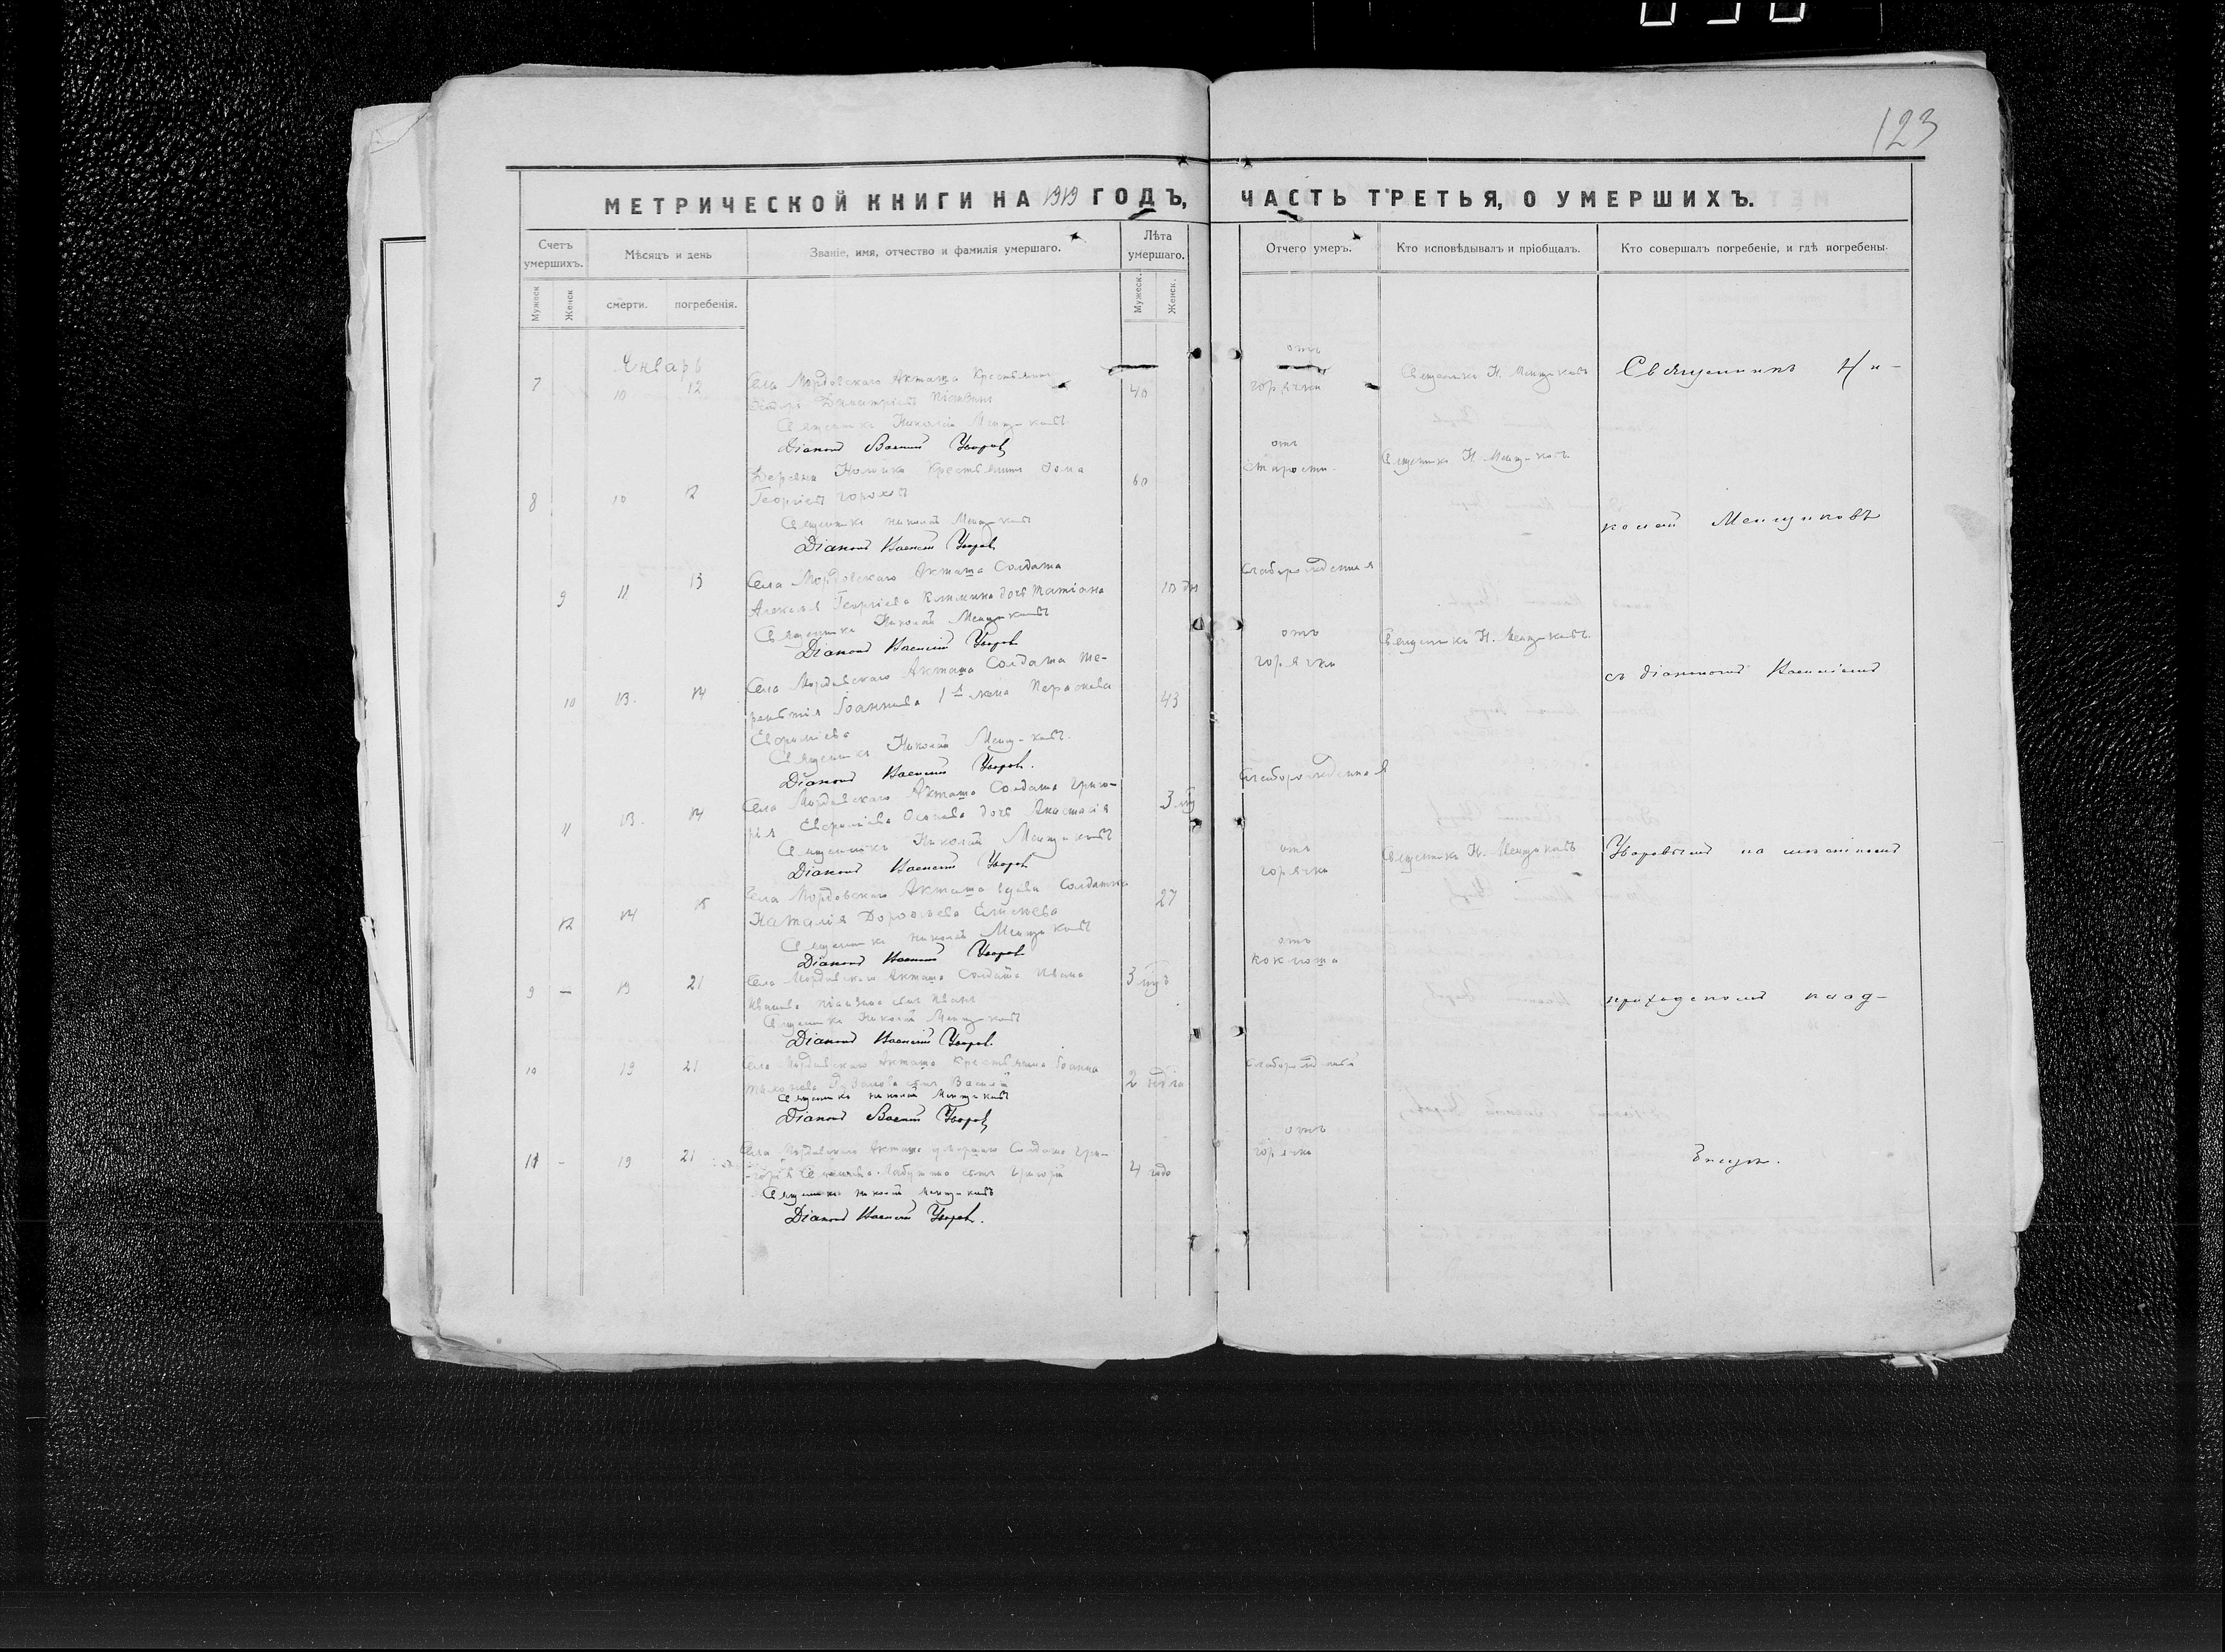 123
МЕТРИЧЕСКОЙ КНИГИ НА 1919 ГОДЪ, ЧАСТЬ ТРЕТЬЯ, О УМЕРШИХЪ.
Счетъ умершихъ.
Мѣсяцъ и день
Званіе, имя, отчество и фамилія умершаго.
Лѣта умершаго.
Отчего умеръ.
Кто исповѣдывалъ и пріобщалъ.
Кто совершалъ погребеніе, и гдѣ погребены.
Мужеск
Женск
смерти.
погребенія.
Мужеск.
Женск.
Январь
7 10 12 Села Мордовскаго Акташа Крестьянинъ 40 отъ горячки Священникъ Н. Менщиковъ
Димитріевъ
Священникъ Николай Менщиковъ
Діаконъ Василій Уваровъ
8 10 12 Деревни Крестьянинъ Ѳома 60 отъ старости Священникъ Н. Менщиковъ
Георгіевъ Гороховъ
Священникъ Николай Менщиковъ
Діаконъ Василій Уваровъ
9 11 13 Села Мордовскаго Акташа Солдата 10 дн Слаборожденная
Алексѣя Георгіева Климина дочь Татіана
Священникъ Николай Менщиковъ
Діаконъ Василій Уваровъ
10 13 14 Села Мордовскаго Акташа Солдата Те- 43 отъ горячки Священникъ Н. Менщиковъ
рентія Іоаннова жена Параскева
Евфиміева
Священникъ Николай Менщиковъ.
Діаконъ Василій Уваровъ.
11 13 14 Села Мордовскаго Акташа Солдата Григо- 3 Слаборожденная
рія Евфиміева Осипова дочь Анастасія
Священникъ Николай Менщиковъ
Діаконъ Василій Уваровъ
12 14 15 Села Мордовскаго Акташа вдова Солдатка 27 отъ горячки Священникъ Н. Менщиковъ
Наталія Дорофѣева Елисѣева
Священникъ Николай Менщиковъ
Діаконъ Василій Уваровъ
9 - 19 21 Села Мордовскаго Акташа Солдата Ивана 3 отъ коклюша
Иванова сынъ Иванъ
Священникъ Николай Менщиковъ
Діаконъ Василій Уваровъ.
10 19 21 Села Мордовскаго Акташа Крестьянина Іоанна 2 Слаборожденный
сынъ Василій
Священникъ Николай Менщиковъ
Діаконъ Василій Уваровъ
11 - 19 21 Села Мордовскаго Акташа умершаго Солдата Гри- 4 года отъ горячки
горія сынъ Григорій
Священникъ Николай Менщиковъ
Діаконъ Василій Уваровъ.
Священникъ Ни-
колай Менщиковъ
съ діакономъ Василіемъ
Уваровымъ на мѣстномъ
приходскомъ клад-
бищѣ.